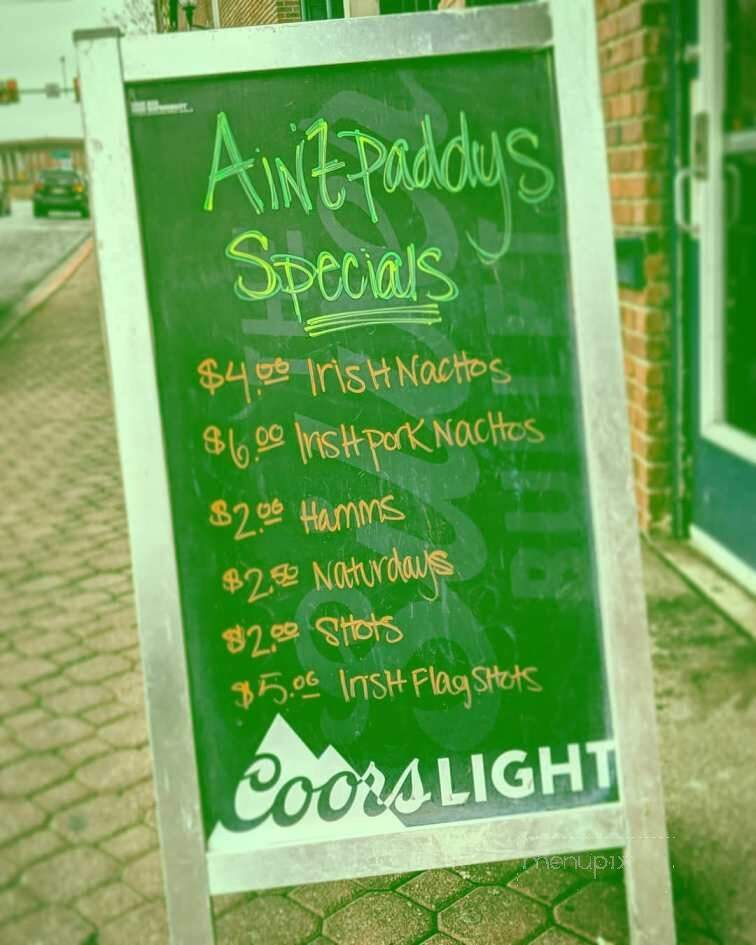 Ain't Paddys
Specials
$4.00 Irish Nachos
$6.00 Irish Pork Nachos
$2.00 Hamms
$2.50 Naturdays
$2.00 Shots
$5.00 Irish Flag Shots
Coors LIGHT
menupix